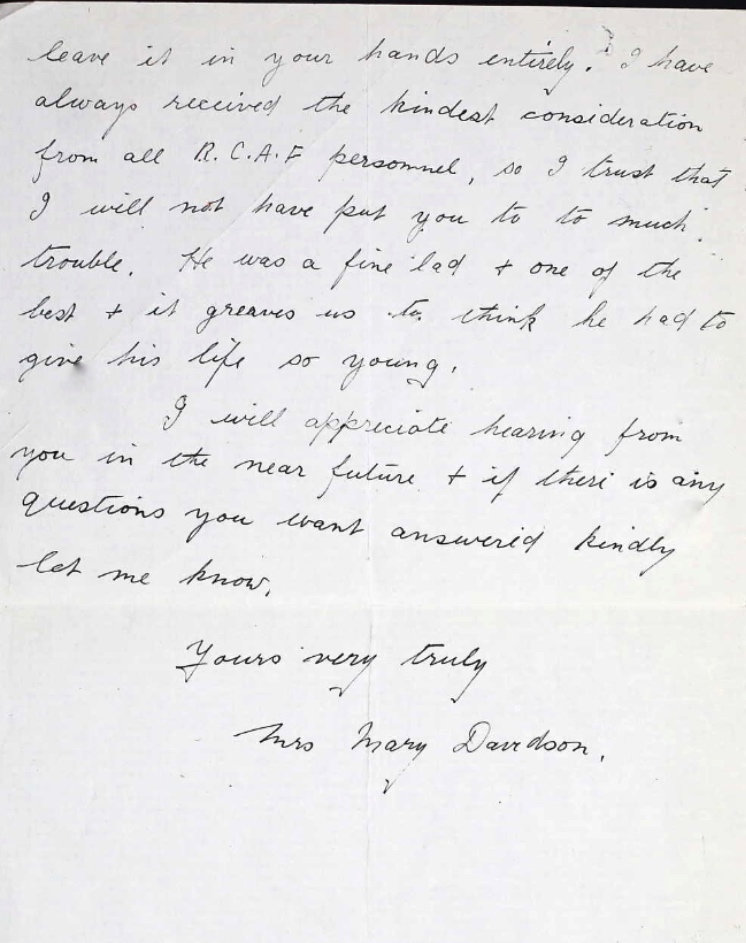 leave it in your hands entirely. I have
always received the kindest consideration
from all R.C.A.F personnel, so I trust that
I will not have put you to to much
trouble. He was a fine lad + one of the
best + it greaves us to think he had to
give his life so young.
I will appreciate hearing from
you in the near future + if there is any
questions you want answered kindly
let me know.
Yours very truly
Mrs Mary Davidson.